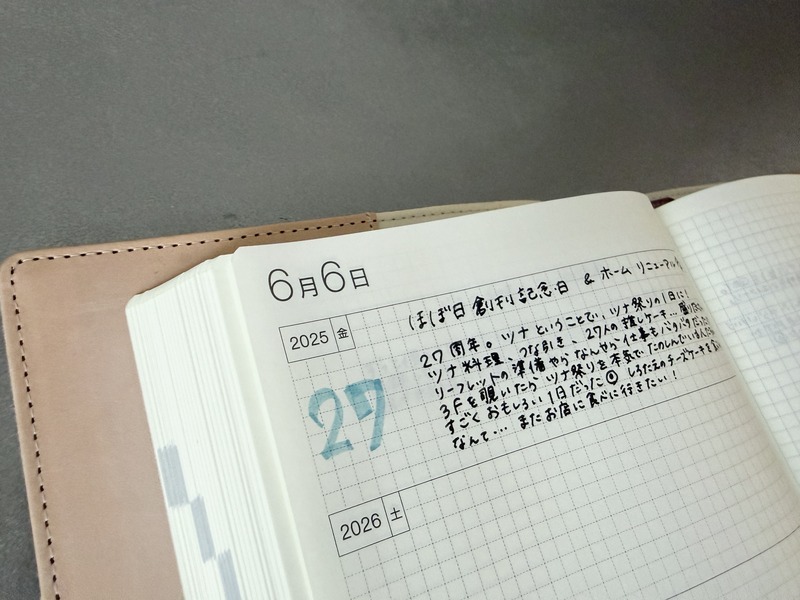 6月6日
2025 金
ほぼ日創刊記念日 & ホームリニューアル
27
27周年。ツナということで、ツナ祭りの1日に!
ツナ料理、つな引き、27人の推しケーキ…
リーフレットの準備やらなんやら仕事もバタバタだった
3Fを覗いたらツナ祭りを本気でたのしんでいる
すごくおもしろい1日だった しろたえのチーズケーキ
なんて… またお店に食べに行きたい!
2026 土